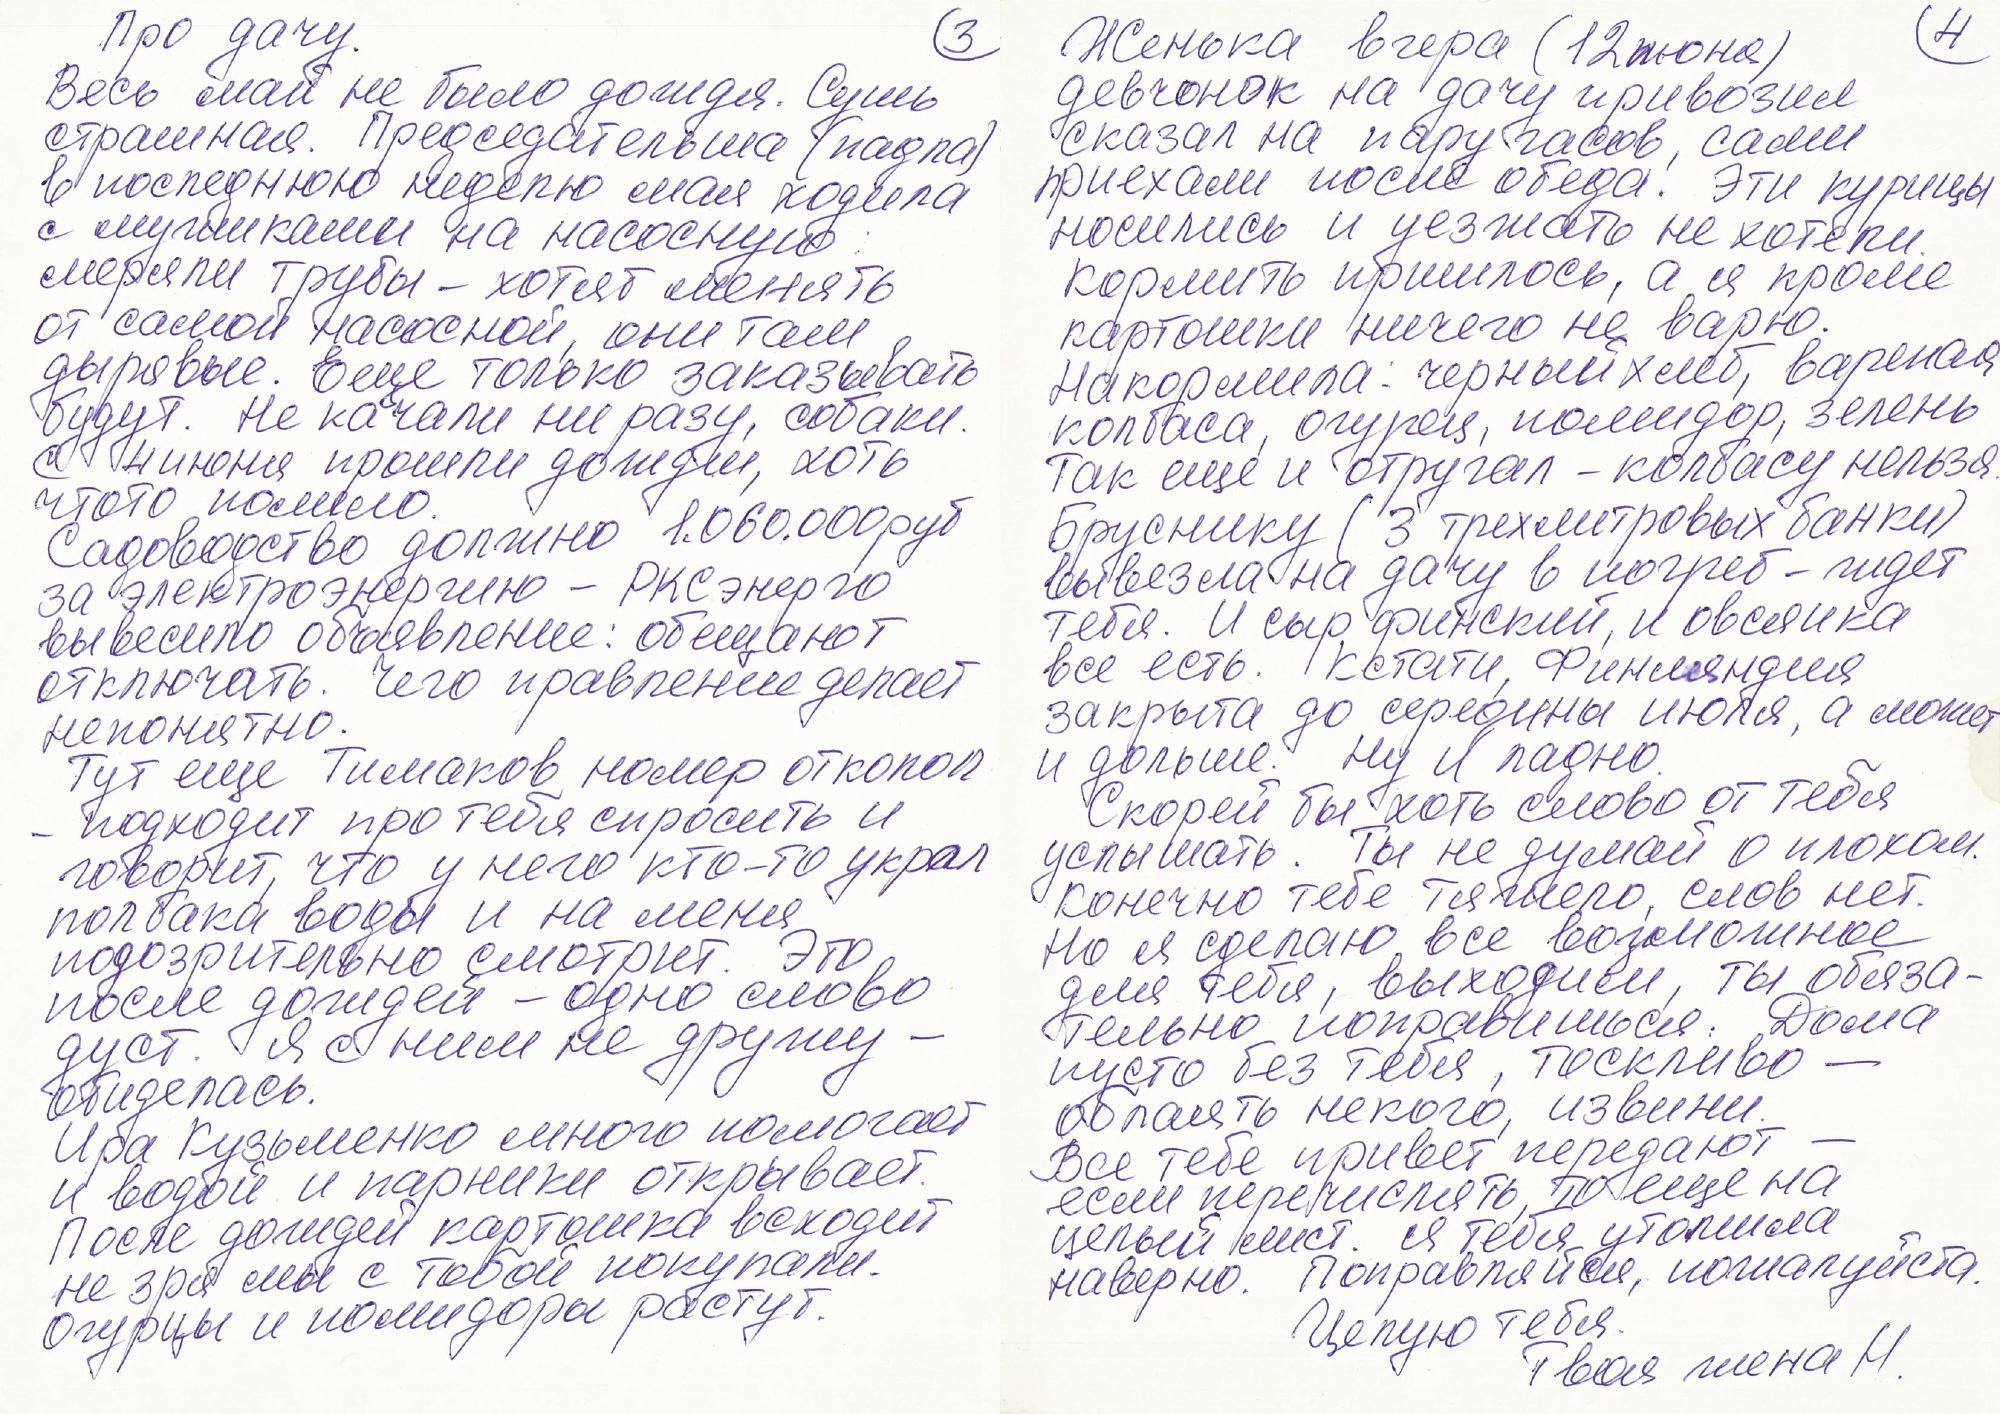 Про дачу.
③
Весь май не было дождя. Сушь
страшная. Председательша (падла)
в последнюю неделю мая ходила
с мужиками на насосную:
меряли трубы – хотят менять
от самой насосной, они там
дырявые. Еще только заказывать
будут. Не качали ни разу, собаки.
С 4 июня прошли дожди, хоть
чтото полило.
Садоводство должно 1.060.000 руб
за электроэнергию – РКСэнерго
вывесило объявление: обещают
отключать. Чего правление делает
непонятно.
Тут еще Тимаков номер отколол
– подходит про тебя спросить и
говорит, что у него кто-то украл
полбака воды и на меня
подозрительно смотрит. Это
после дождей – одно слово
дуст. Я с ним не дружу –
обиделась.
Ира Кузьменко много помогает
и водой и парники открывает.
После дождей картошка всходит
не зря мы с тобой покупали.
Огурцы и помидоры растут.
④
Женька вчера (12 июня)
девчонок на дачу привозил
сказал на пару часов, сами
приехали после обеда. Эти курицы
носились и уезжать не хотели.
Кормить пришлось, а я кроме
картошки ничего не варю.
Накормила: черный хлеб, вареная
колбаса, огурец, помидор, зелень
Так еще и отругал – колбасу нельзя.
Бруснику (3 трехлитровых банки)
вывезла на дачу в погреб – ждет
тебя. И сыр финский, и овсянка
все есть. Кстати, Финляндия
закрыта до середины июля, а может
и дольше. Ну и ладно.
Скорей бы хоть слово от тебя
услышать. Ты не думай о плохом.
Конечно тебе тяжело, слов нет.
Но я сделаю все возможное
для тебя, выходим, ты обяза-
тельно поправишься. Дома
пусто без тебя, тоскливо –
облаять некого, извини.
Все тебе привет передают –
если перечислять, то еще на
целый лист. Я тебя утомила
наверно. Поправляйся, пожалуйста.
Целую тебя.
Твоя жена Н.